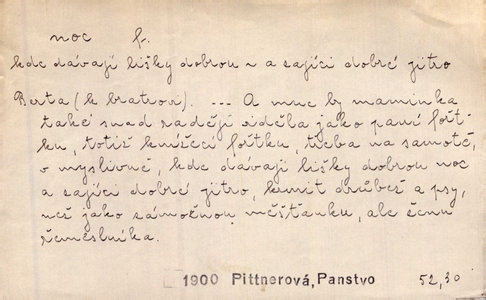 noc f.
kde dávají lišky dobrou ~ a zajíci dobré jitro
Berta (k bratrovi). --- A mne by maminka
také snad raději viděla jako paní fořt-
ku, totiž knížecí fořtku, třeba na samotě,
v myslivně, kde dávají lišky dobrou noc
a zajíci dobré jitro, krmit drůbež a psy,
než jako zámožnou měšťanku, ale ženu
řemeslníka.
1900 Pittnerová, Panstvo 52,30